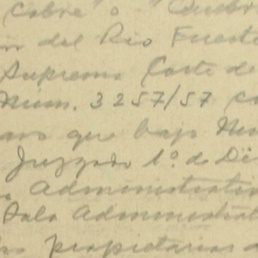 cobre" o "
del Rio Fuerte
Suprema Corte de
Núm. 3257/57
que bajo
Juzgado 1º. de
Administrativ
Sala Administrat
propietarios